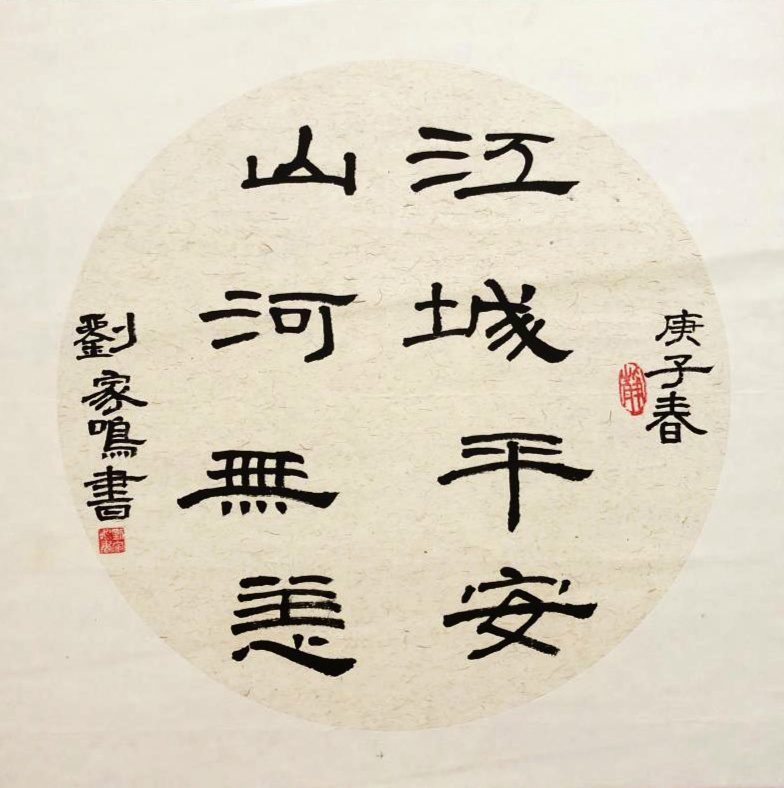 庚子春
江城平安
山河無恙
劉家鳴書